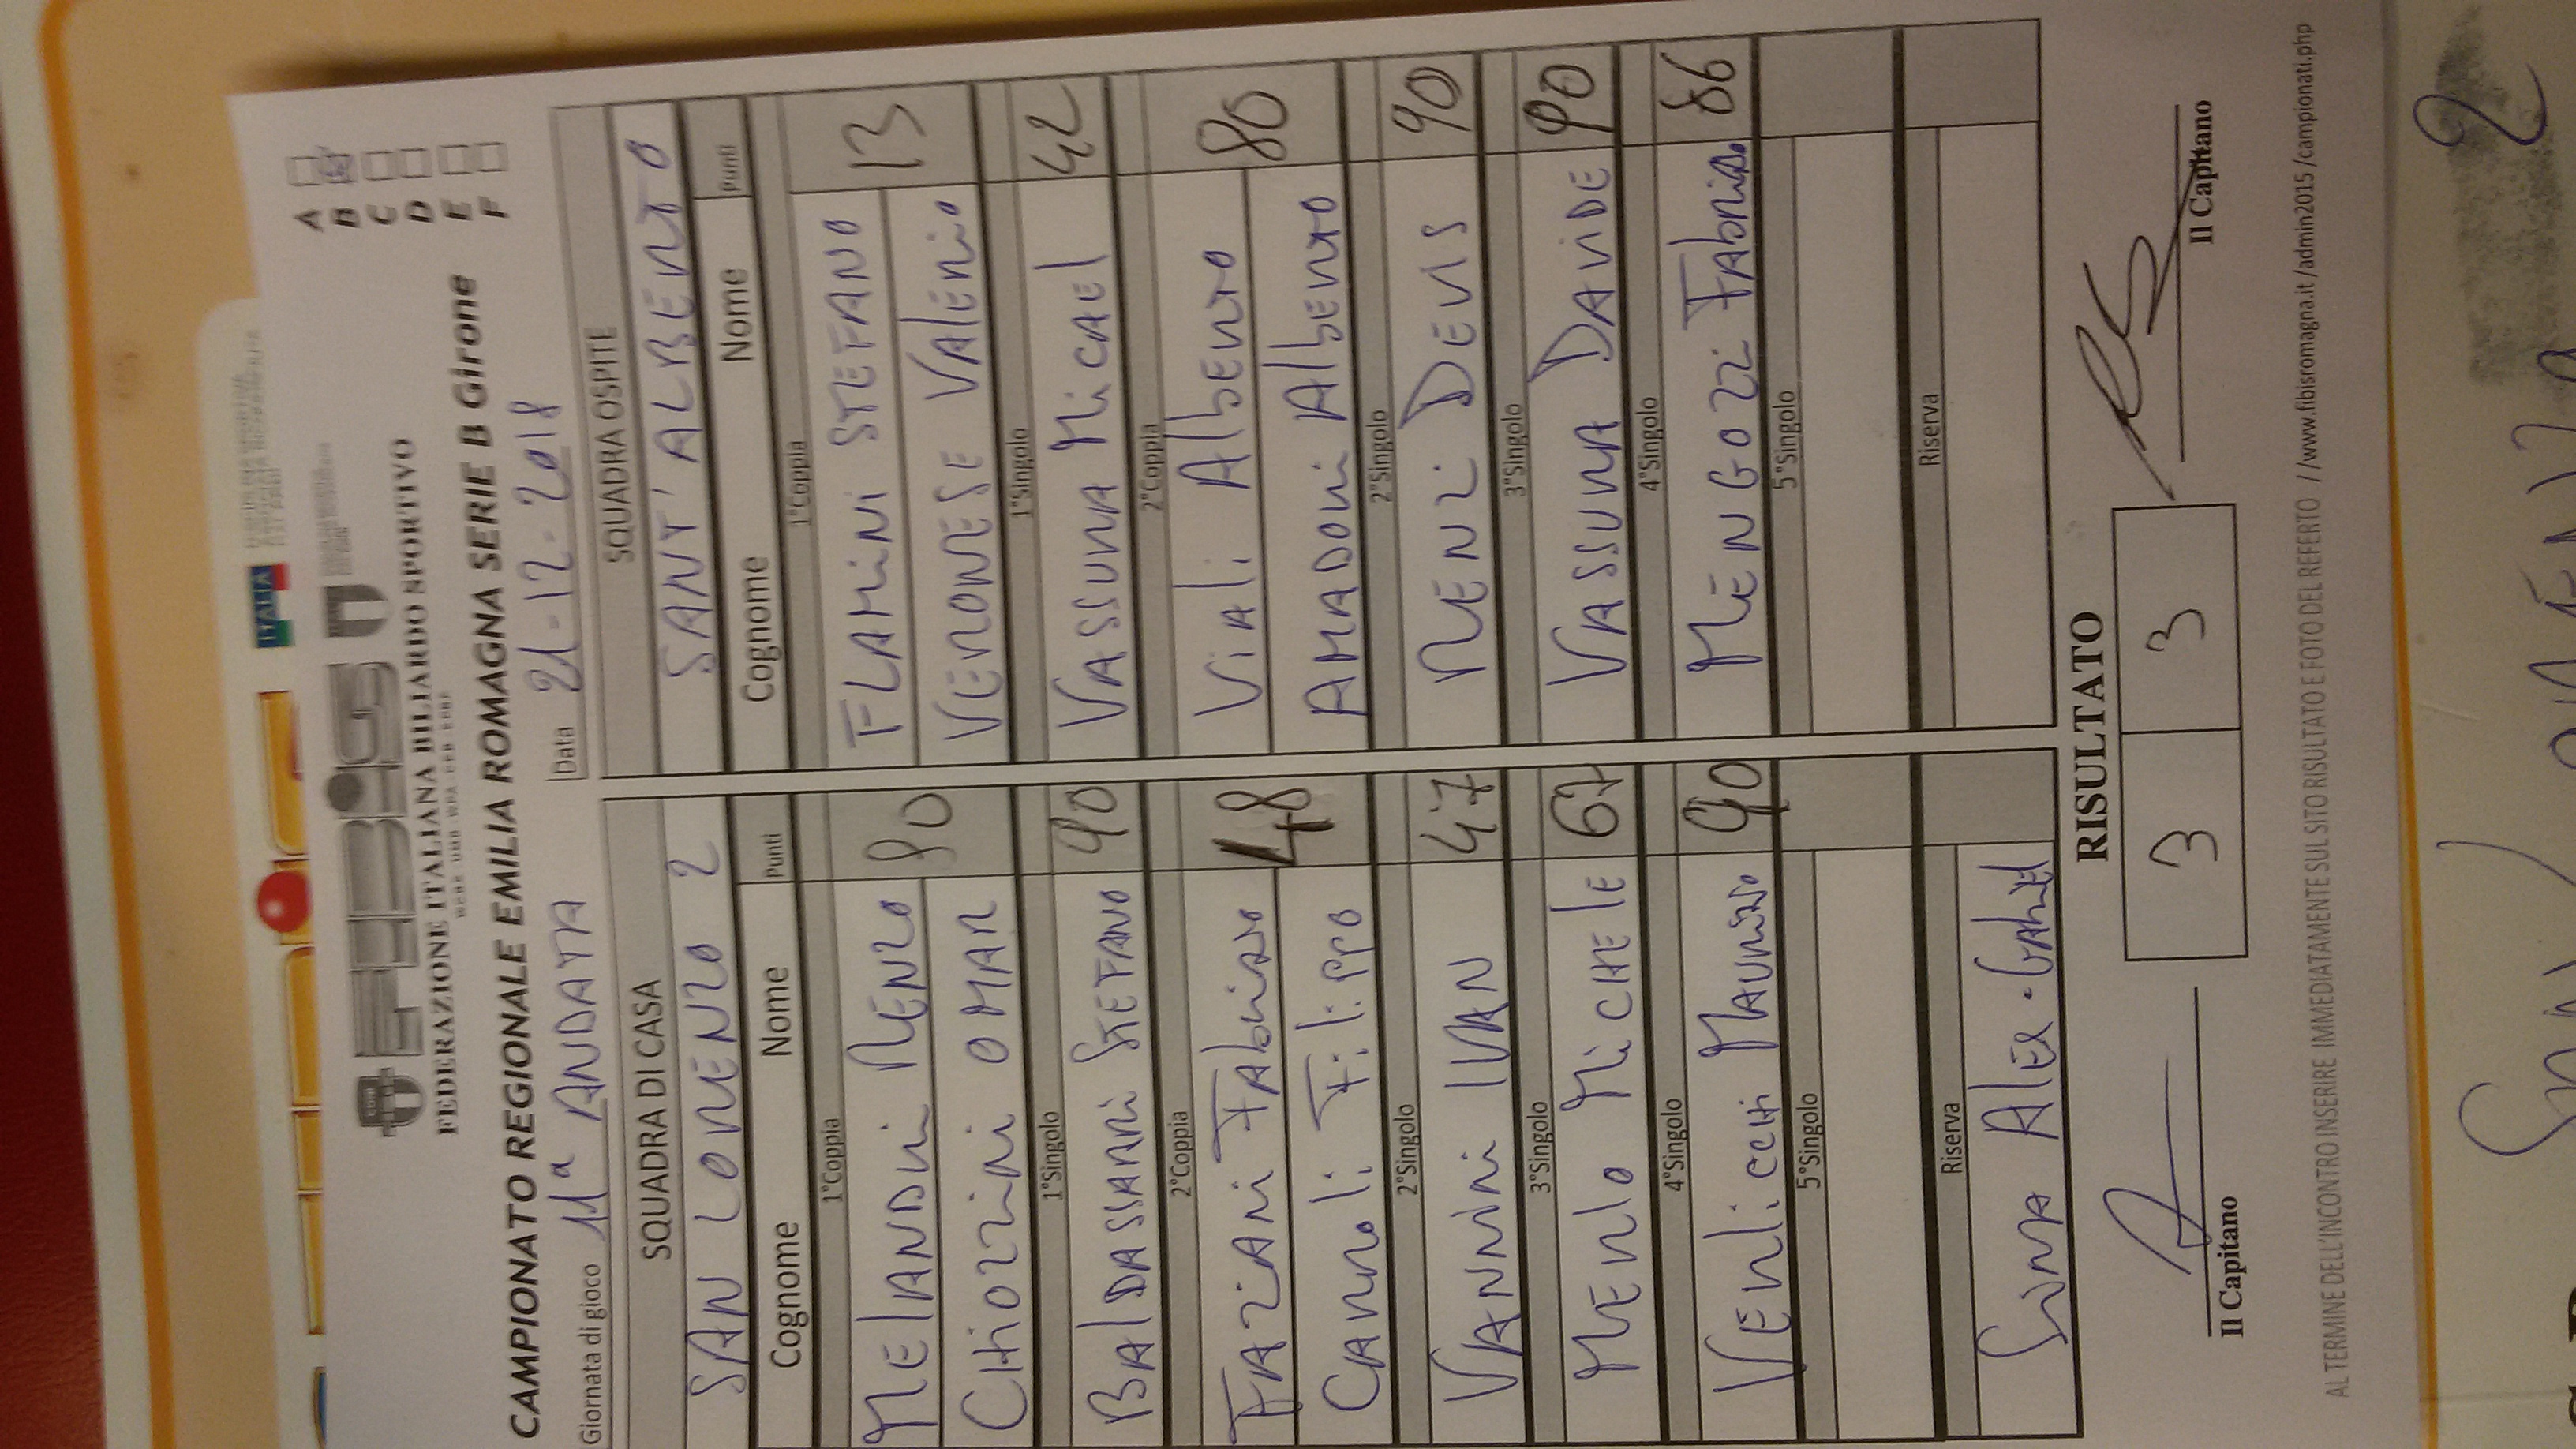 ITALIA
FEDERAZIONE ITALIANA BILIARDO SPORTIVO
CAMPIONATO REGIONALE EMILIA ROMAGNA SERIE B Girone
A
B
C
D
E
F
Giornata di gioco 11ª ANDATA Data 21-12-2018
SQUADRA DI CASA SQUADRA OSPITE
SAN LORENZO 2 SANT'ALBERTO
Cognome Nome Punti Cognome Nome Punti
1°Coppia 1°Coppia
MELANDRI RENZO 80 FLAMINI STEFANO 13
CHIOZZINI OMAR VERONESE VALERIO
1°Singolo 1°Singolo
BALDASSARRI STEFANO 90 VASSURA MICAEL 42
2°Coppia 2°Coppia
FAZIANI FABRIZIO 48 VIALI ALBERTO 80
CARROLI FILIPPO AMADORI ALBERTO
2°Singolo 2°Singolo
VANNINI IVAN 47 NERI DENIS 90
3°Singolo 3°Singolo
MERLO MICHELE 67 VASSURA DAVIDE 90
4°Singolo 4°Singolo
VERLICCHI MAURIZIO 90 MENGOZZI FABRIZIO 86
5°Singolo 5°Singolo
Riserva Riserva
SURRA ALEX-GABRIEL
RISULTATO
3 3
Il Capitano Il Capitano
AL TERMINE DELL'INCONTRO INSERIRE IMMEDIATAMENTE SUL SITO RISULTATO E FOTO DEL REFERTO //www.fibisromagna.it/admin2015/campionati.php
2